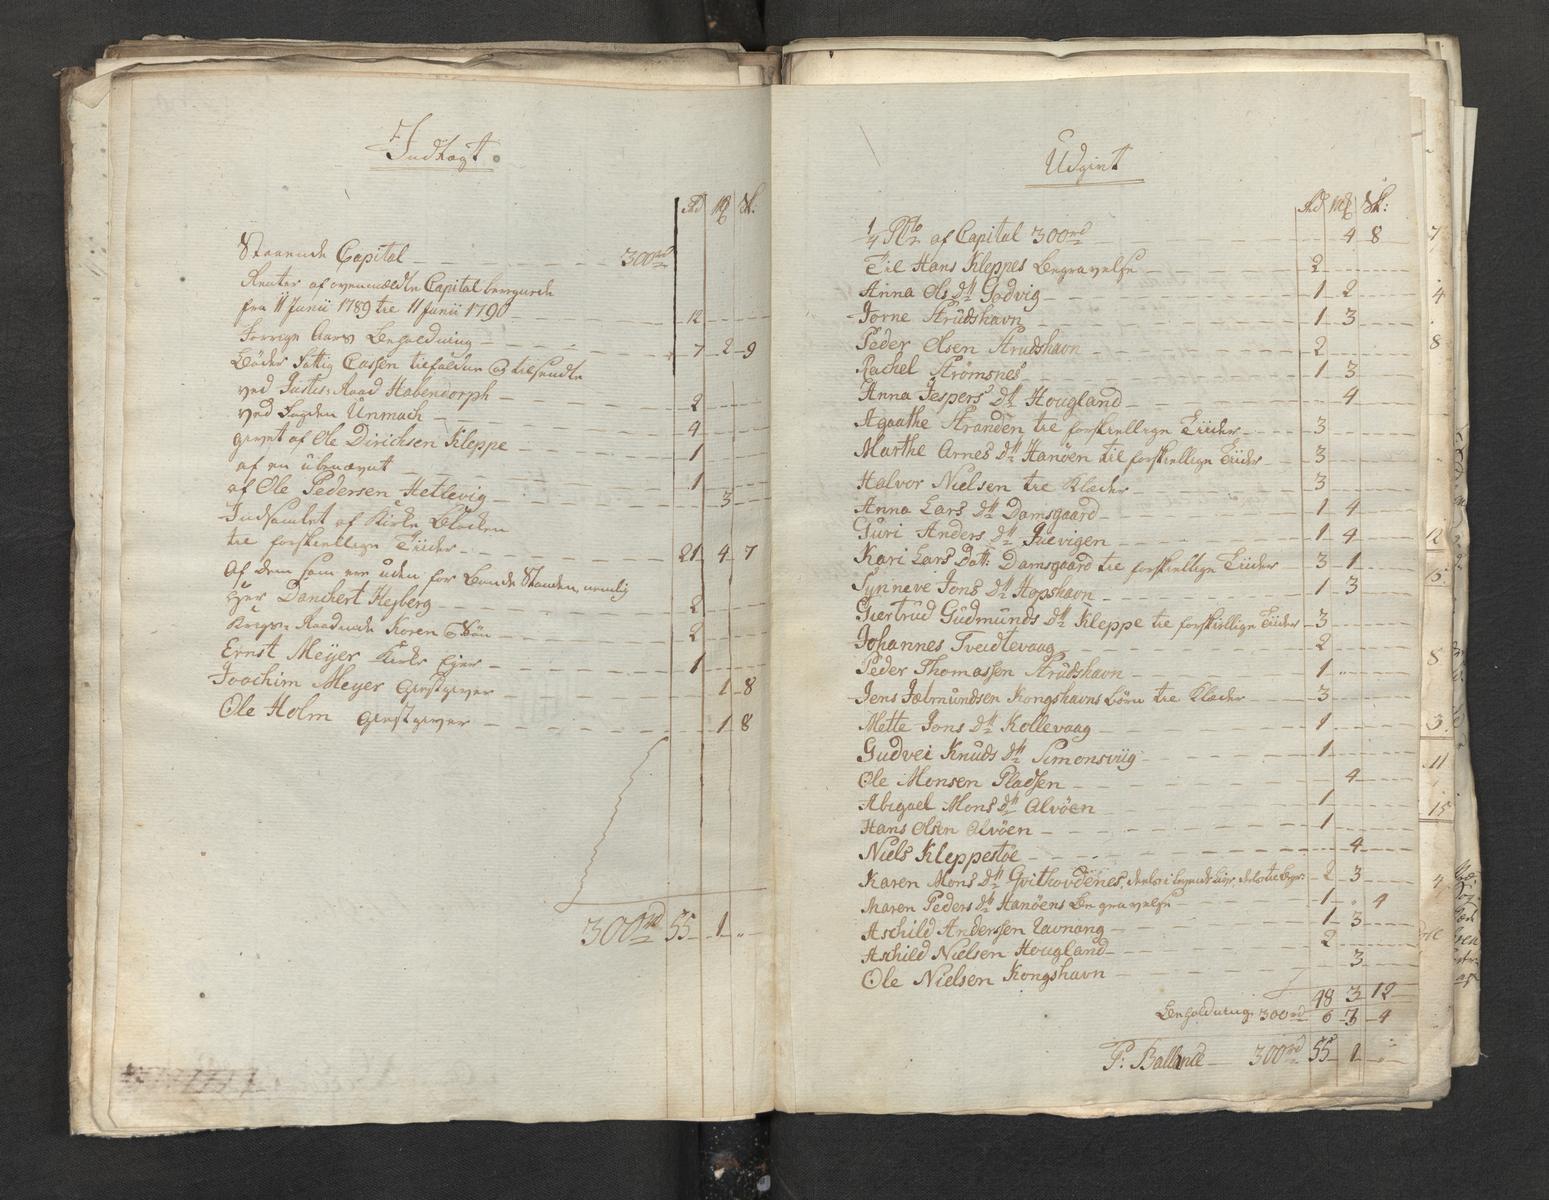 Indtægt.
Rd mk Sk:
Staaende Capital 300rd
Renter af ovenmældte Capital beregnede
fra 11 Junii 1789 til 11 Junii 1790 12
Forrige Aars Beholdning 7 2 9
Bøder Fattig Cassen tilfaldne og tilsendte
ved Justis: Raad Habendorph 2
ved Fogden Unmach 4
givet af Ole Dirichsen Kleppe 1
af en ubenævnt 1
af Ole Pedersen Hetlevig 3
Indsamlet af Kirke Blocken
til forskiellige Tiider 21 4 7
Af dem som ere uden for Bonde Standen, nemlig
Herr Danchert Hejberg 2
Krigs: Raadinde Koren & Søn 2
Ernst Meÿer Kirke Ejer 1
Joachim Meyer giestgiver 1 8
Ole Holm giestgiver 1 8
300rd 55 1 "
Udgivt
Rd mk Sk:
1/4 PCto af Capital 300rd 4 8
Til Hans Kleppes Begravelse 2
Anna Ols Dtr Godvig 1 2
Jorne Strudshavn 1 3
Peder Olsen Strudshavn 2
Rachel Strømsnes 1 3
Anna Jespers Dtr Hougland 4
Agaathe Stranden til forskiellige Tiider 3
Marthe Arnes Dtr Hanøen til forskiellige Tiider 3
Halvor Nielsen til Klæder 3
Anna Lars Dtr Damsgaard 1 4
Guri Anders Dtr 1 4
Kari Lars Datt: Damsgaard til forskiellige Tiider 3 1
Synneve Jons Dtr Hopshavn 1 3
Giertrud Gudmunds Dtr Kleppe til forskiellige Tiider 3
Johannes Tveidtevaag 2
Peder Thomassen Strudshavn 1
Jens Jælmundsen Kongshavns Børn til Klæder 3
Mette Jons Dtr Kollevaag 1
Gudvei Knuds Dtr Simonsviig 1
Ole Monsen Pladsen 4
Abigael Mons Dtr Alvøen 1
Hans Olsen Alvøen 1
Niels Kleppestøe 4
Karen Mons Dtr 2 3
Maren Peders Dtr Hanøens Begravelse 1 " 4
Aschild Anderssen 1 3
Aschild Nielsen Hougland 2
Ole Nielsen Kongshavn 3
48 3 12
Beholdning 300rd 6 3 4
P: Ballance 300rd 55 1 "